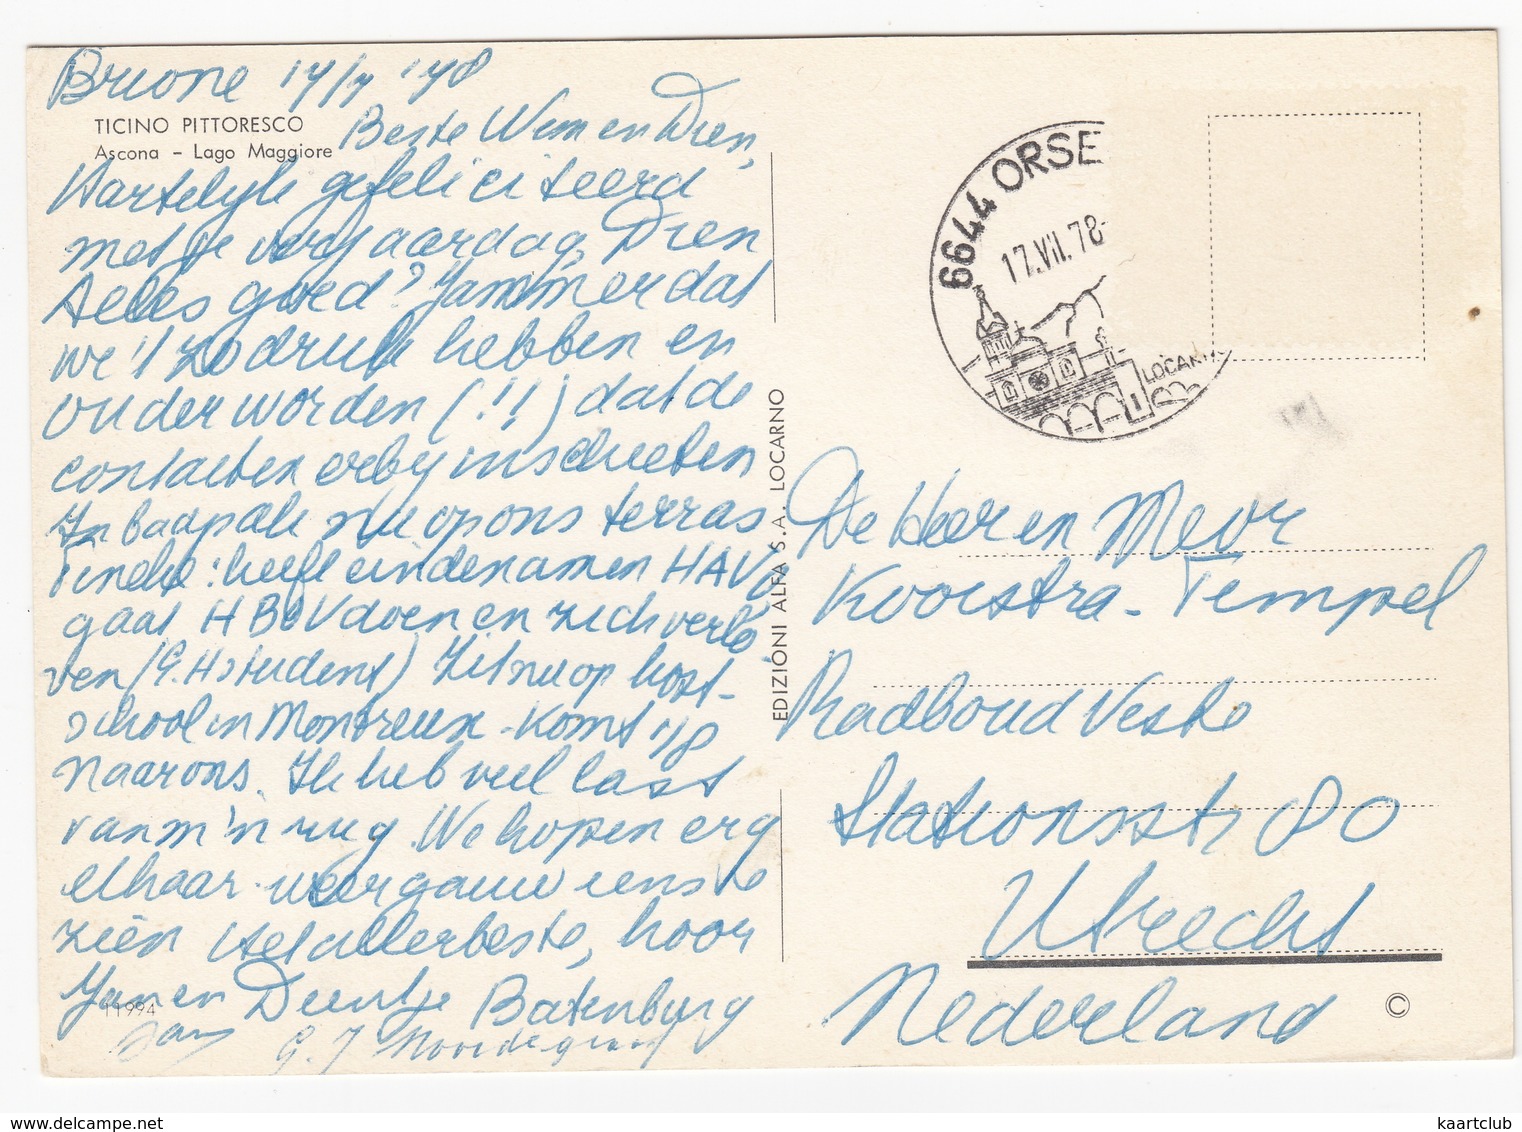 Brione 17/7 '78
TICINO PITTORESCO
Ascona – Lago Maggiore
Beste Wim en Dien,
Hartelijk gefeliciteerd
met je verjaardag, Dien
Alles goed? Jammer dat
we 't zo druk hebben en
ouder worden (!!) dat de
contacten erbij inschieten
In baapale nu op ons terras
Tineke: heeft eindexamen HAVO
gaat HBOV doen en zich verlo
ven (G.H student) Zit nu op host-
school in Montreux - Komt 1/8
naar ons. Ik heb veel last
van m'n rug. We hopen erg
elkaar weer gauw eens te
zien Het allerbeste, hoor
Jan en Deentje Batenburg
11994
G. J. Noordegraaf
EDIZIONI ALFA S.A. LOCARNO
6644 ORSE
17.VII.78-
LOCARN
De Heer en Mevr
Kooistra-Tempel
Radboud Veste
Stationsstr 80
Utrecht
Nederland
©
kaartclub